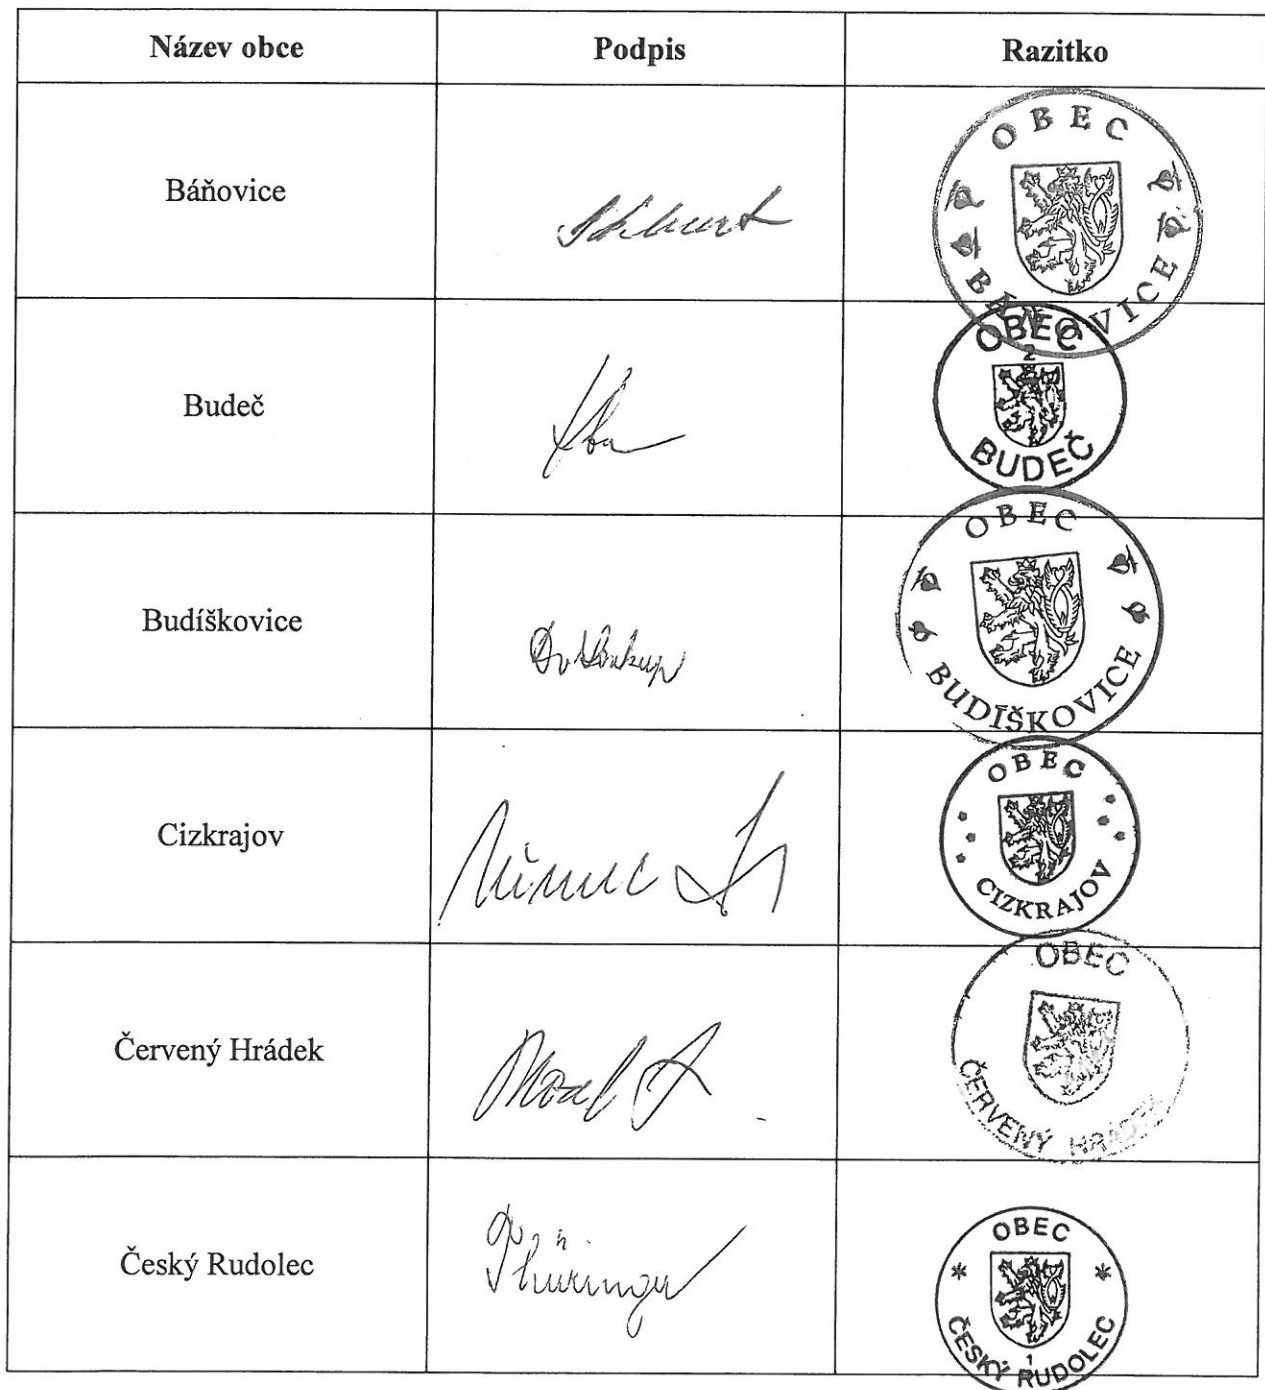 Název obce Podpis Razitko
Báňovice
OBEC
BÁŇOVICE
Budeč
OBEC
2
BUDEČ
Budíškovice
OBEC
BUDÍŠKOVICE
Cizkrajov
OBEC
CIZKRAJOV
Červený Hrádek
OBEC
ČERVENÝ HRÁDEK
Český Rudolec
OBEC
1
ČESKÝ RUDOLEC